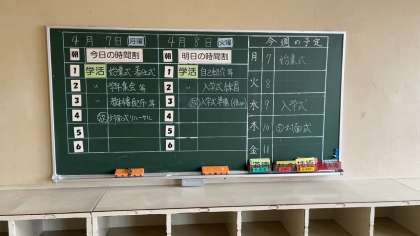 4月7日 月曜
4月8日 火曜
今週の予定
朝 今日の時間割
朝 明日の時間割
1 学活 始業式 着任式
1 学活 自己紹介 等
2 〃 学年集会 等
2 〃 入学式練習
3 〃 教科書配布 等
3 入学式準備
4
4
5
5
6
6
月 7 始業式
火 8
水 9 入学式
木 10 対面式
金 11